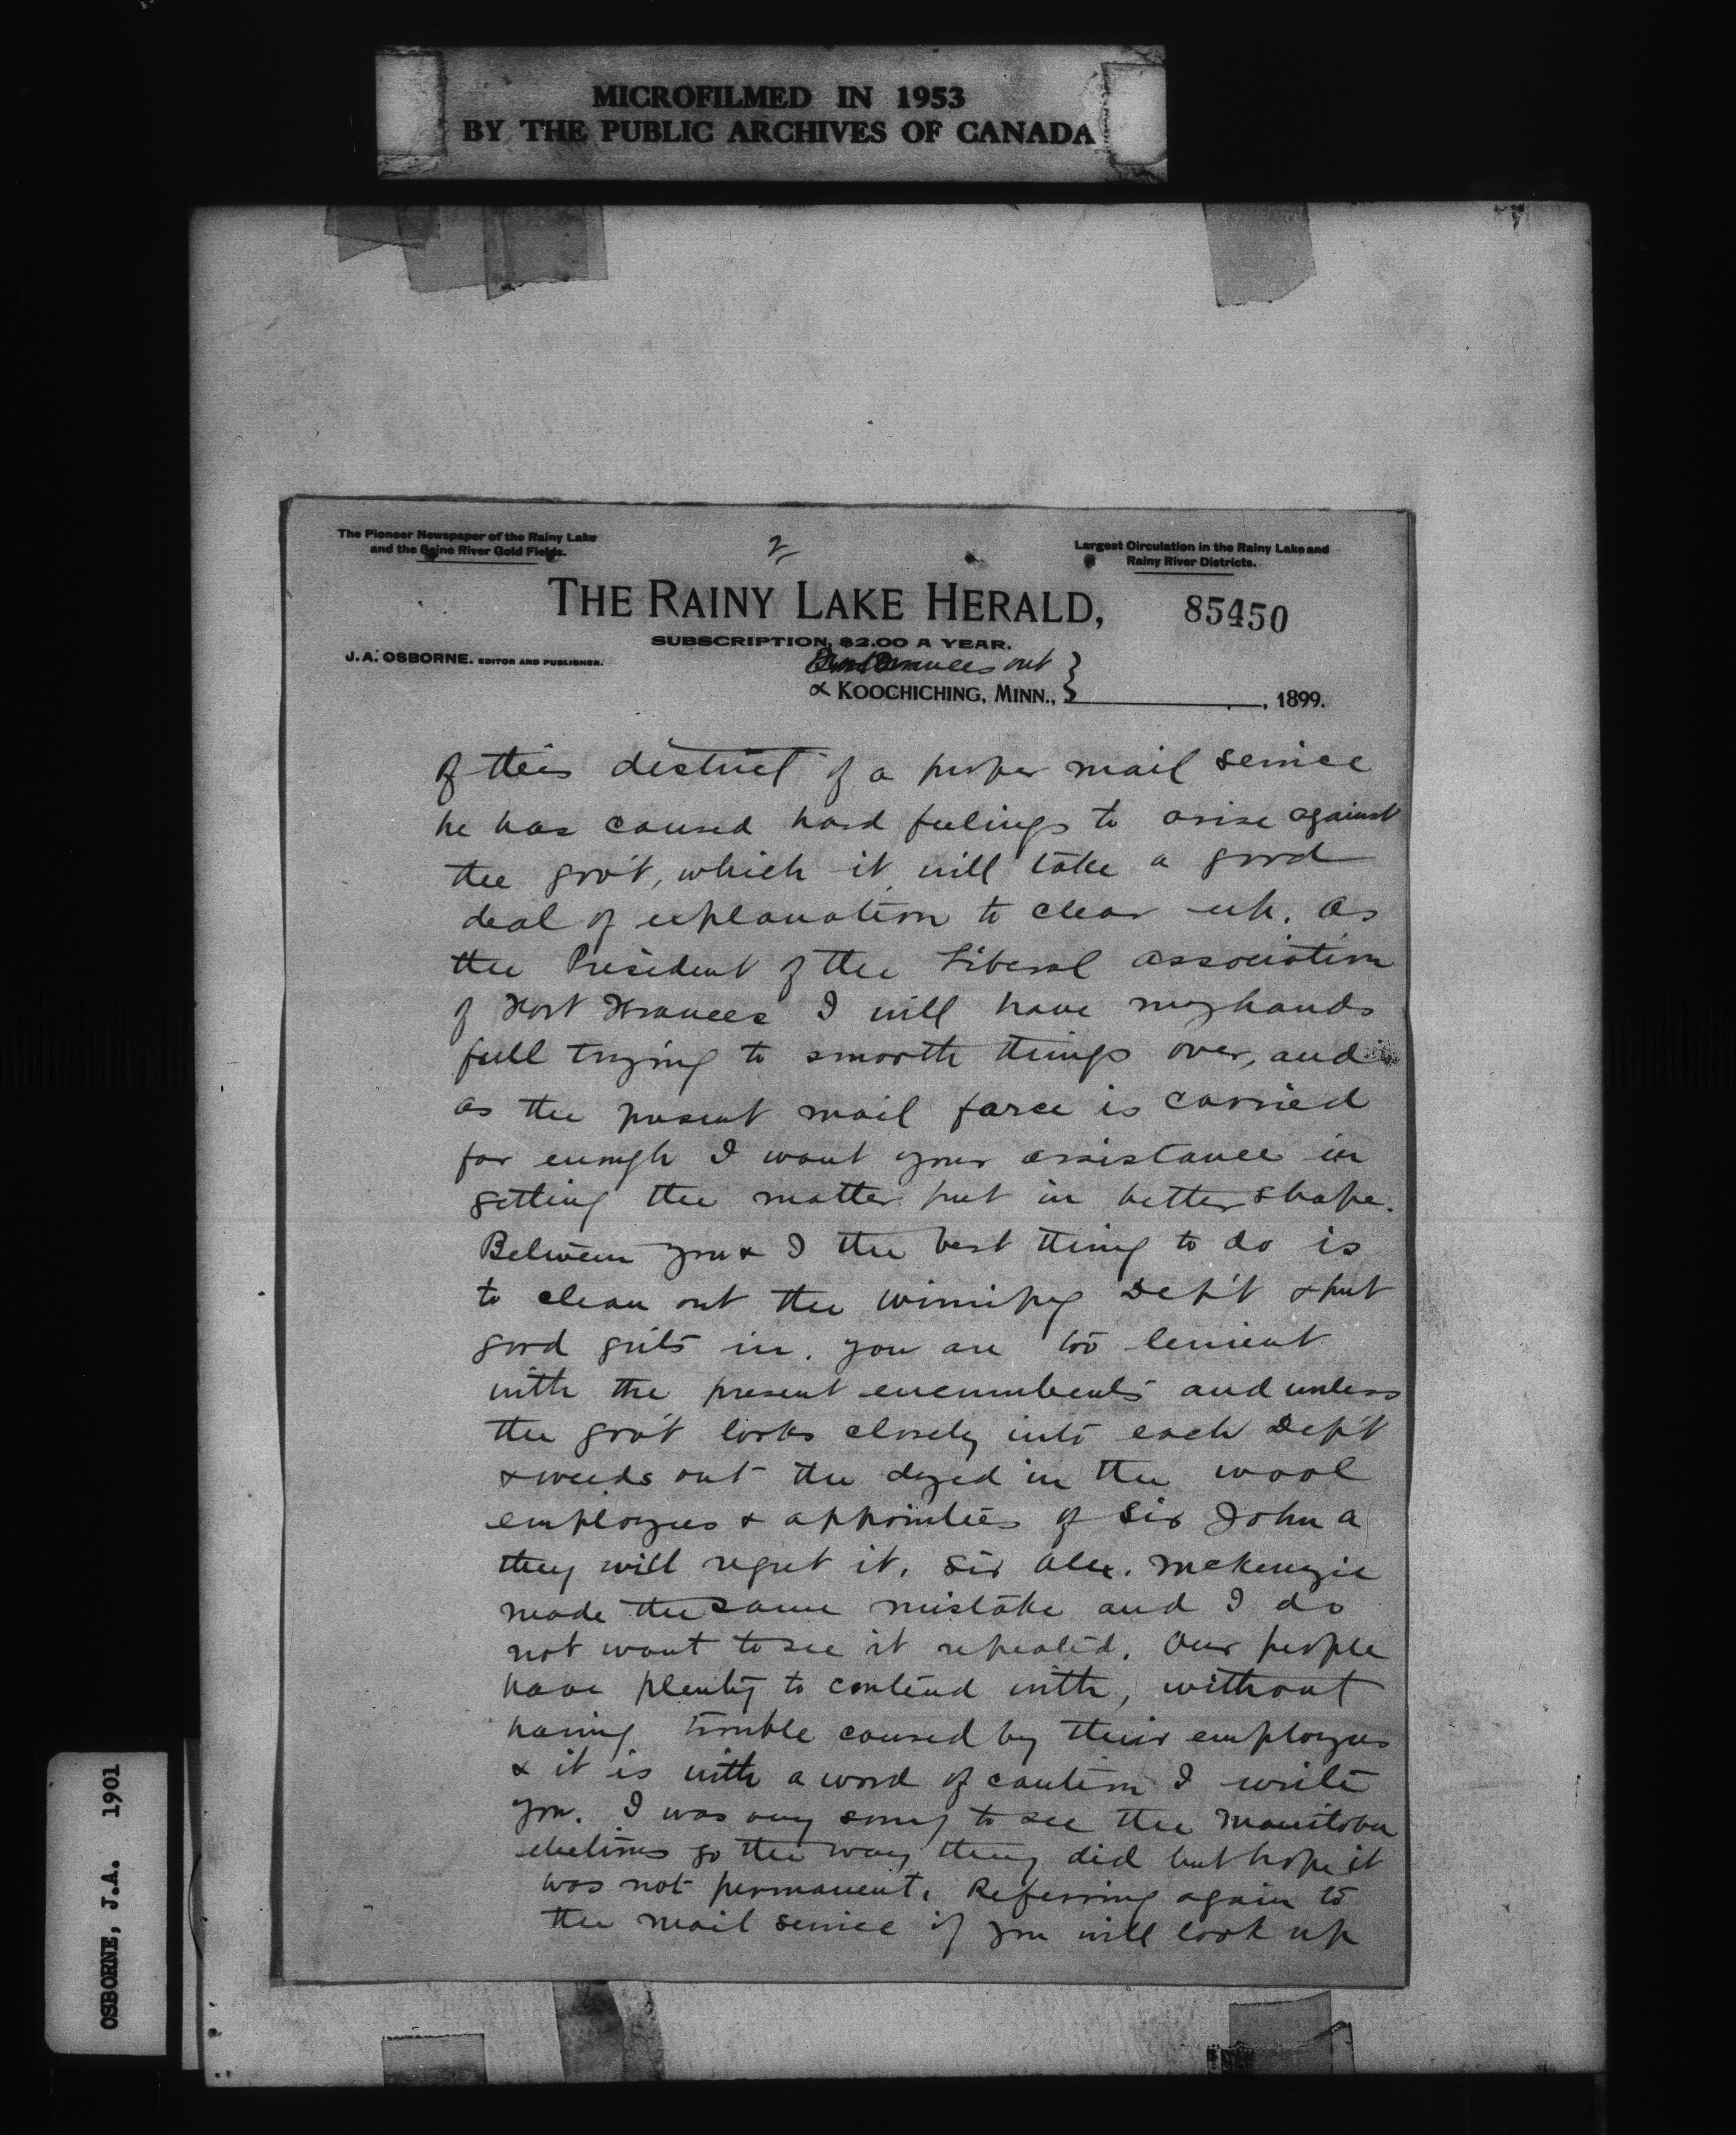 MICROFILMED IN 1953
BY THE PUBLIC ARCHIVES OF CANADA
The Pioneer Newspaper of the Rainy Lake
and the Seine River Gold Fields.
2
Largest Circulation in the Rainy Lake and
Rainy River Districts.
THE RAINY LAKE HERALD,
85450
SUBSCRIPTION, $2.00 A YEAR.
J. A. OSBORNE. EDITOR AND PUBLISHER.
Fort Frances Ont }
& KOOCHICHING, MINN., , 1899.
of this district of a proper mail service
he has caused hard feelings to arise against
the gov't, which it will take a good
deal of explanation to clear up. As
the President of the Liberal association
of Fort Frances I will have my hands
full trying to smooth things over, and
as the present mail farce is carried
far enough I want your assistance in
getting the matter put in better shape.
Between you & I the best thing to do is
to clean out the Winnipeg Dep't & put
good grits in. You are too lenient
with the present encumbents and unless
the gov't looks closely into each Dep't
& weeds out the dyed in the wool
employees & appointees of Sir John A
they will regret it. Sir Alex. McKenzie
made the same mistake and I do
not want to see it repeated. Our people
have plenty to contend with, without
having trouble caused by their employees
& it is with a word of caution I write
you. I was very sorry to see the Manitoba
elections go the way they did but hope it
was not permanent. Referring again to
the mail service if you will look up
OSBORNE, J.A. 1901